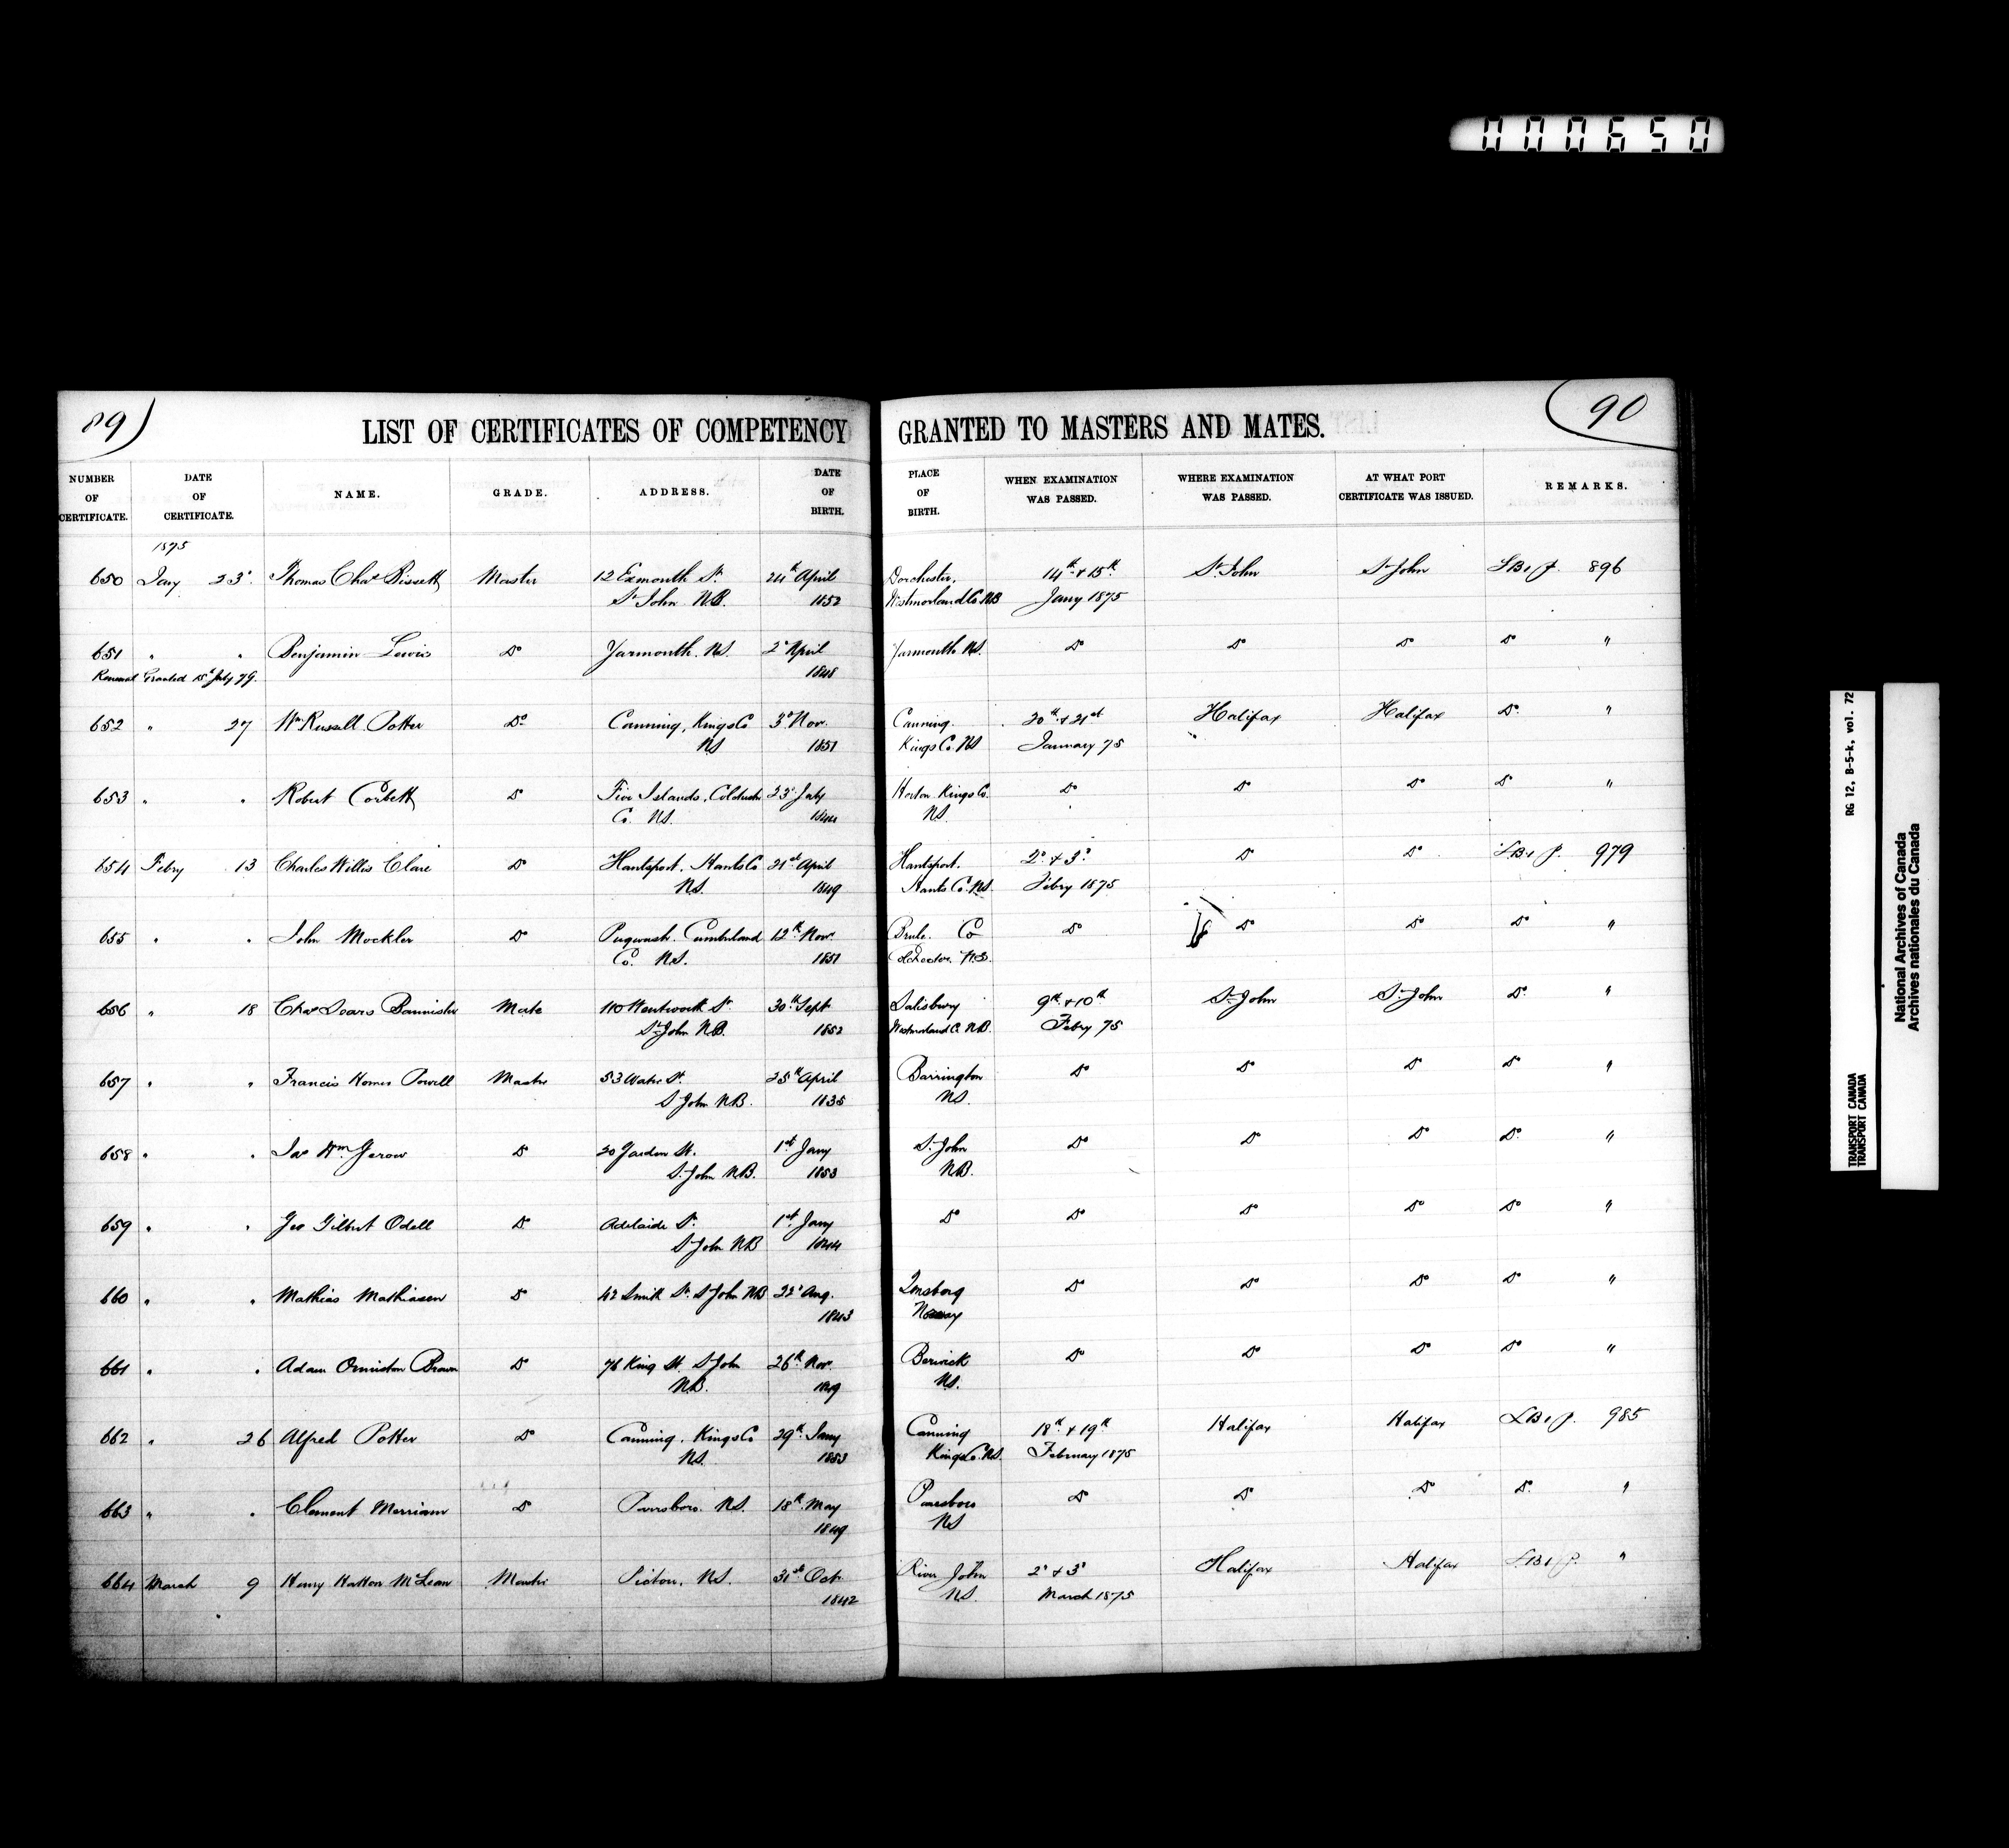 000650
89)
(90
LIST OF CERTIFICATES OF COMPETENCY GRANTED TO MASTERS AND MATES.
NUMBER OF CERTIFICATE. DATE OF CERTIFICATE. NAME. GRADE. ADDRESS. DATE OF BIRTH. PLACE OF BIRTH. WHEN EXAMINATION WAS PASSED. WHERE EXAMINATION WAS PASSED. AT WHAT PORT CERTIFICATE WAS ISSUED. REMARKS.
1875
650 Jany 23d Thomas Chas Bissett Master 12 Exmouth St. 24th April Dorchester, 14th & 15th St John St John 896
St John N.B. 1852 Westmorland Co. N.B Jany 1875
651 " " Benjamin Lewis Do Yarmouth. N.S. 2d April Yarmouth N.S. Do Do Do Do "
Renewal Granted 15th July 79. 1848
652 " 27 Wm Russell Potter Do Canning, Kings Co 3d Nov. Canning. 20th & 21st Halifax Halifax Do "
NS 1851 Kings Co. NS January 75
653 " " Robert Corbett Do Five Islands, Colchester 23d July Horton Kings Co. Do Do Do Do "
Co. N.S. 1844 N.S.
654 Febry 13 Charles Willis Clare Do Hantsport, Hants Co 21st April Hantsport. 2d & 3d Do Do 979
N.S. 1849 Hants Co. N.S. Febry 1875
655 " " John Mockler Do Pugwash. Cumberland 12th Nov. Brule. Co Do Do Do Do "
Co. N.S. 1851 Colchester N.S.
656 " 18 Chas Sears Bannister Mate 110 Wentworth St 30th Sept Salisbury 9th & 10th St John St John Do "
St John N.B. 1852 Westmorland Co. N.B. Febry 75
657 " " Francis Homer Powell Master 53 Water St. 25th April Barrington Do Do Do Do "
St John N.B. 1835 N.S.
658 " " Jas Wm Gerow Do 20 Garden St. 1st Jany St John Do Do Do Do "
St. John N.B. 1853 N.B.
659 " " Geo Gilbert Odell Do Adelaide St. 1st Jany Do Do Do Do Do "
St John NB 1844
660 " " Mathias Mathiasen Do 42 Smith St. St John NB 22d Aug. Do Do Do Do "
1843 Norway
661 " " Adam Ormiston Brown Do 76 King St. St John 26th Nov. Berwick Do Do Do Do "
N.B. 1849 N.S.
662 " 26 Alfred Potter Do Canning, Kings Co 29th Jany Canning 18th & 19th Halifax Halifax 985
N.S. 1853 Kings Co. N.S. February 1875
663 " " Clement Merriam Do Parrsboro. N.S. 18th May Parrsboro Do Do Do Do "
1849 NS
664 March 9 Henry Hatton McLean Master Pictou, N.S. 31st Oct. River John 2d & 3d Halifax Halifax "
1842 N.S. March 1875
RG 12, B-5-k, vol. 72
TRANSPORT CANADA
TRANSPORT CANADA
National Archives of Canada
Archives nationales du Canada